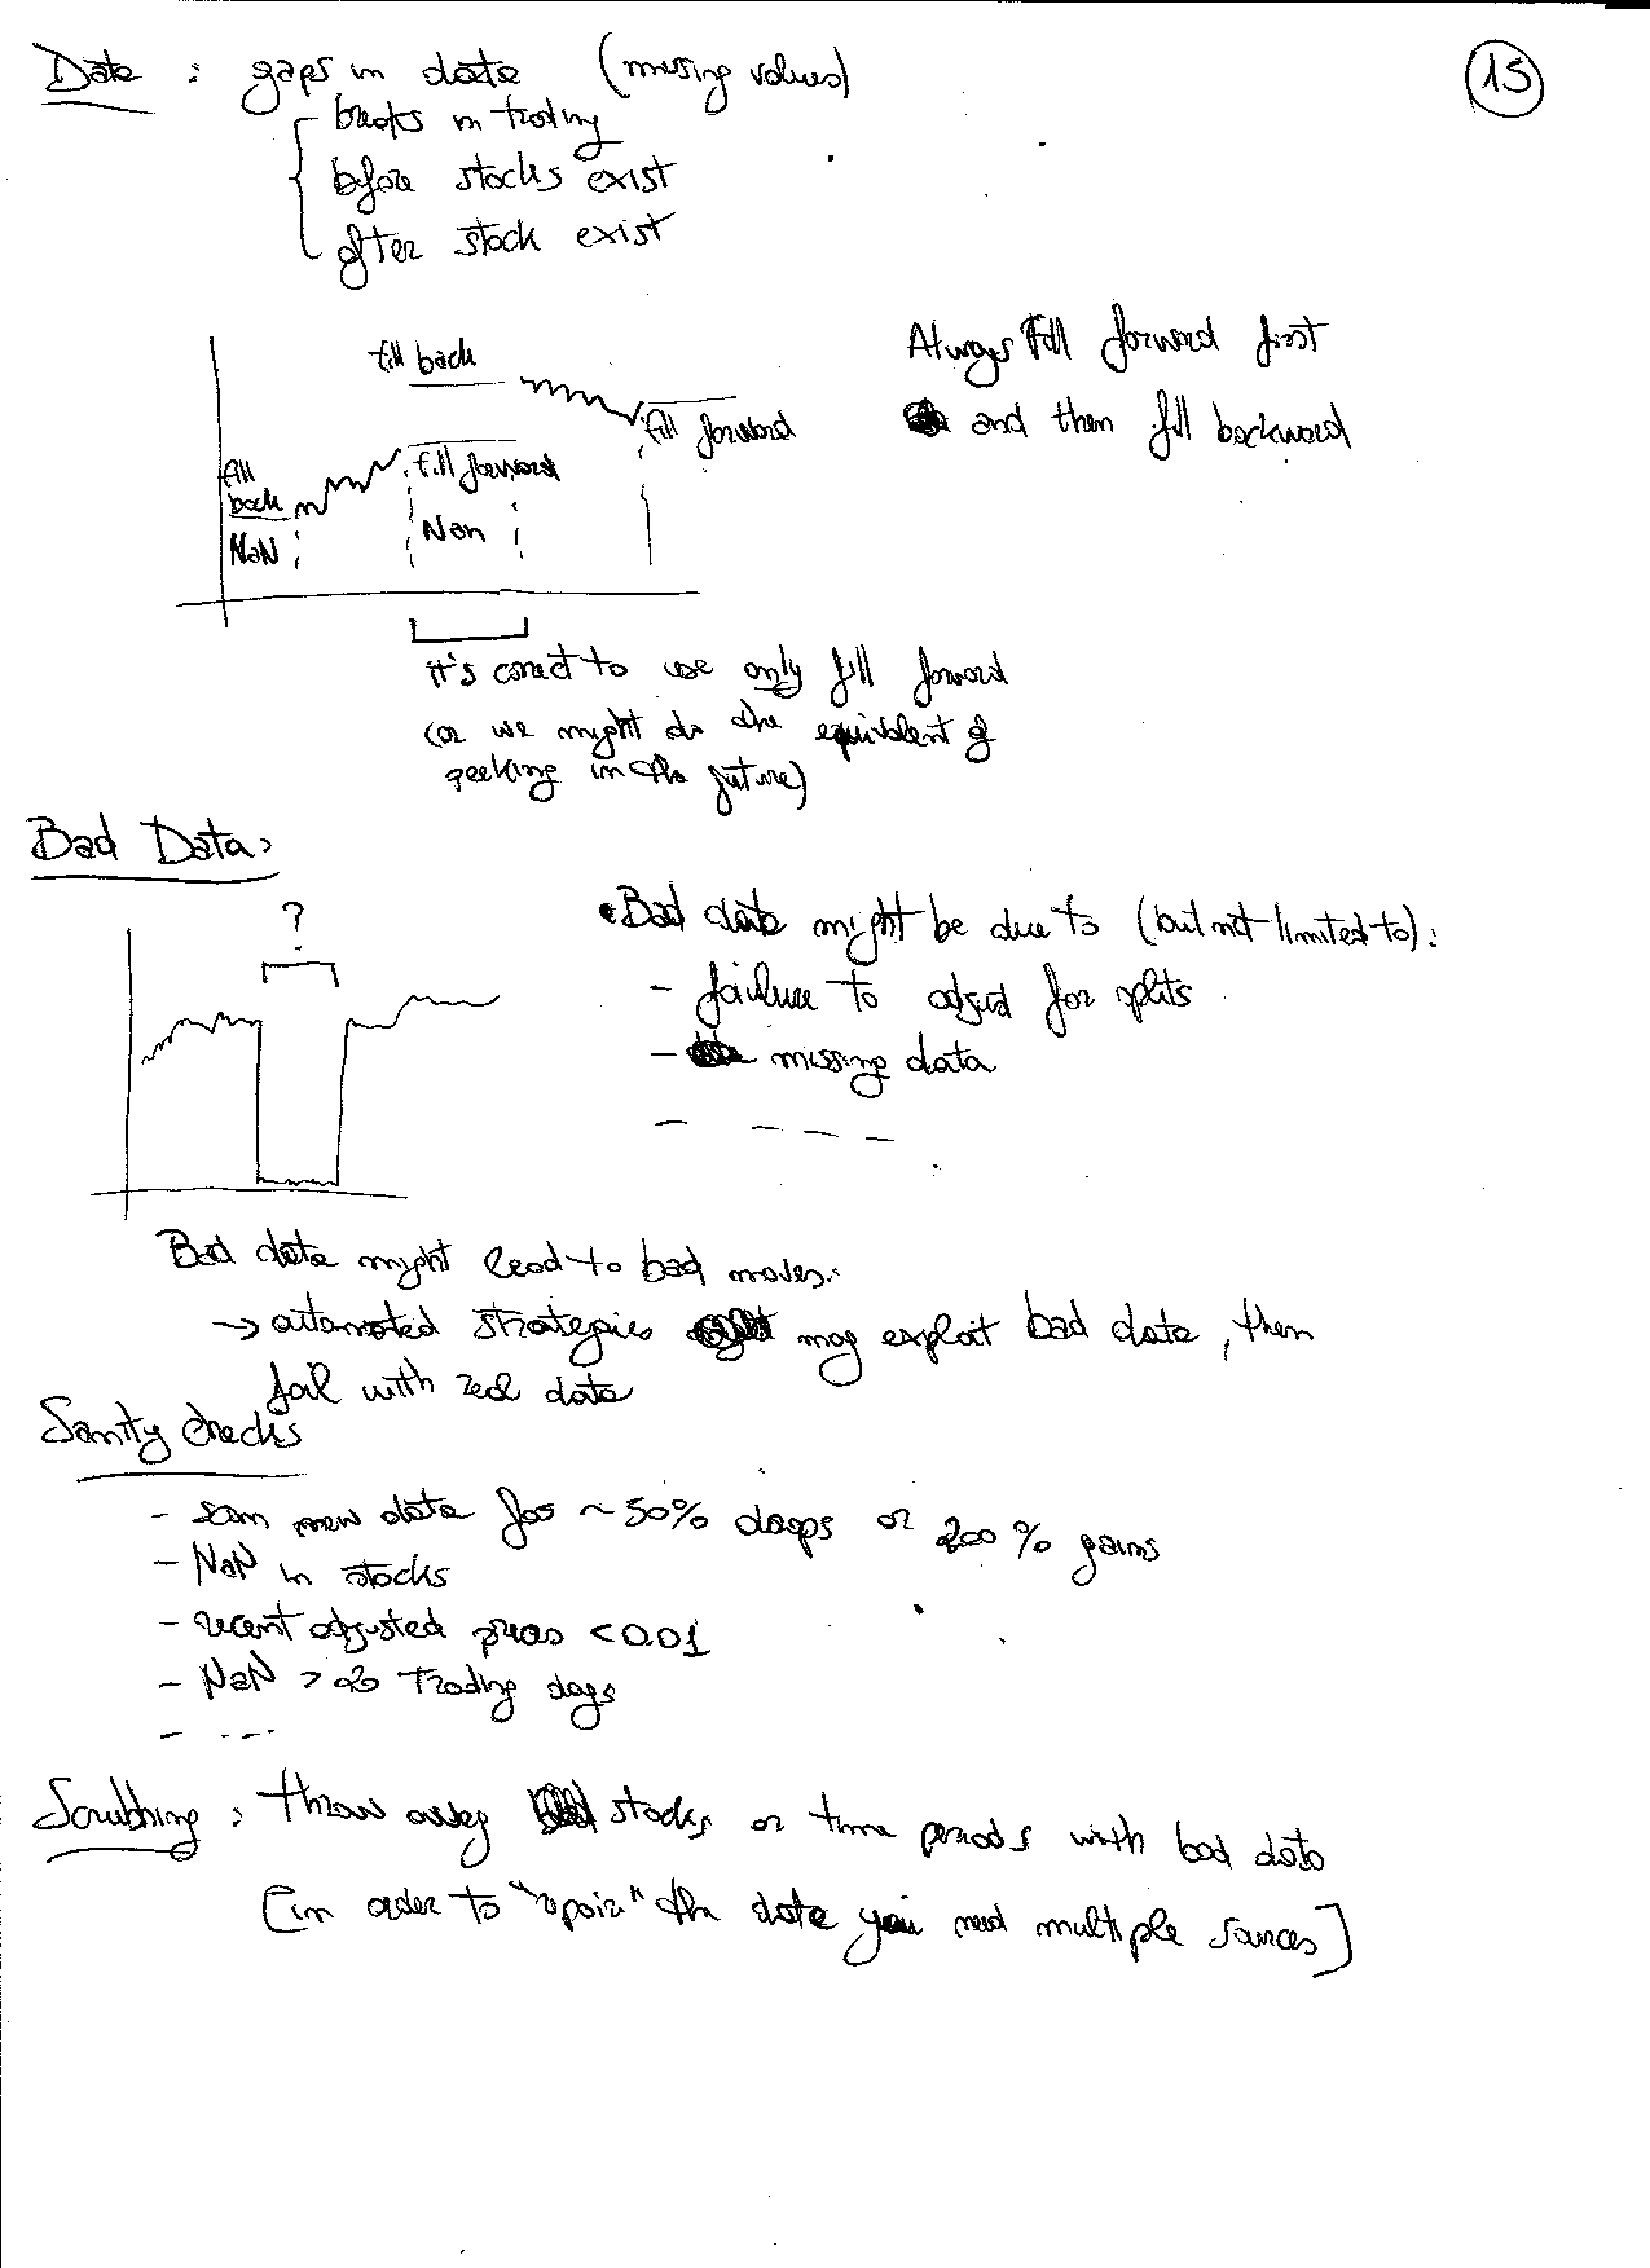 15
Data : gaps in data (missing values)
breaks in trading
before stocks exist
after stock exist
fill back
fill forward
fill forward
fill
back
NaN
Nan
Always fill forward first
and then fill backward
it's correct to use only fill forward
(or we might do the equivalent of
peeking in the future)
Bad Data:
?
• Bad data might be due to (but not limited to):
- failure to adjust for splits
- missing data
- - - -
Bad data might lead to bad moves:
→ automated strategies may exploit bad data, then
fail with real data
Sanity checks
- scan new data for ~50% drops or 200% gains
- NaN in stocks
- recent adjusted prices <0.01
- NaN > 20 trading days
- ---
Scrubbing: throw away stocks or time periods with bad data
[in order to "repair" the data you need multiple sources]